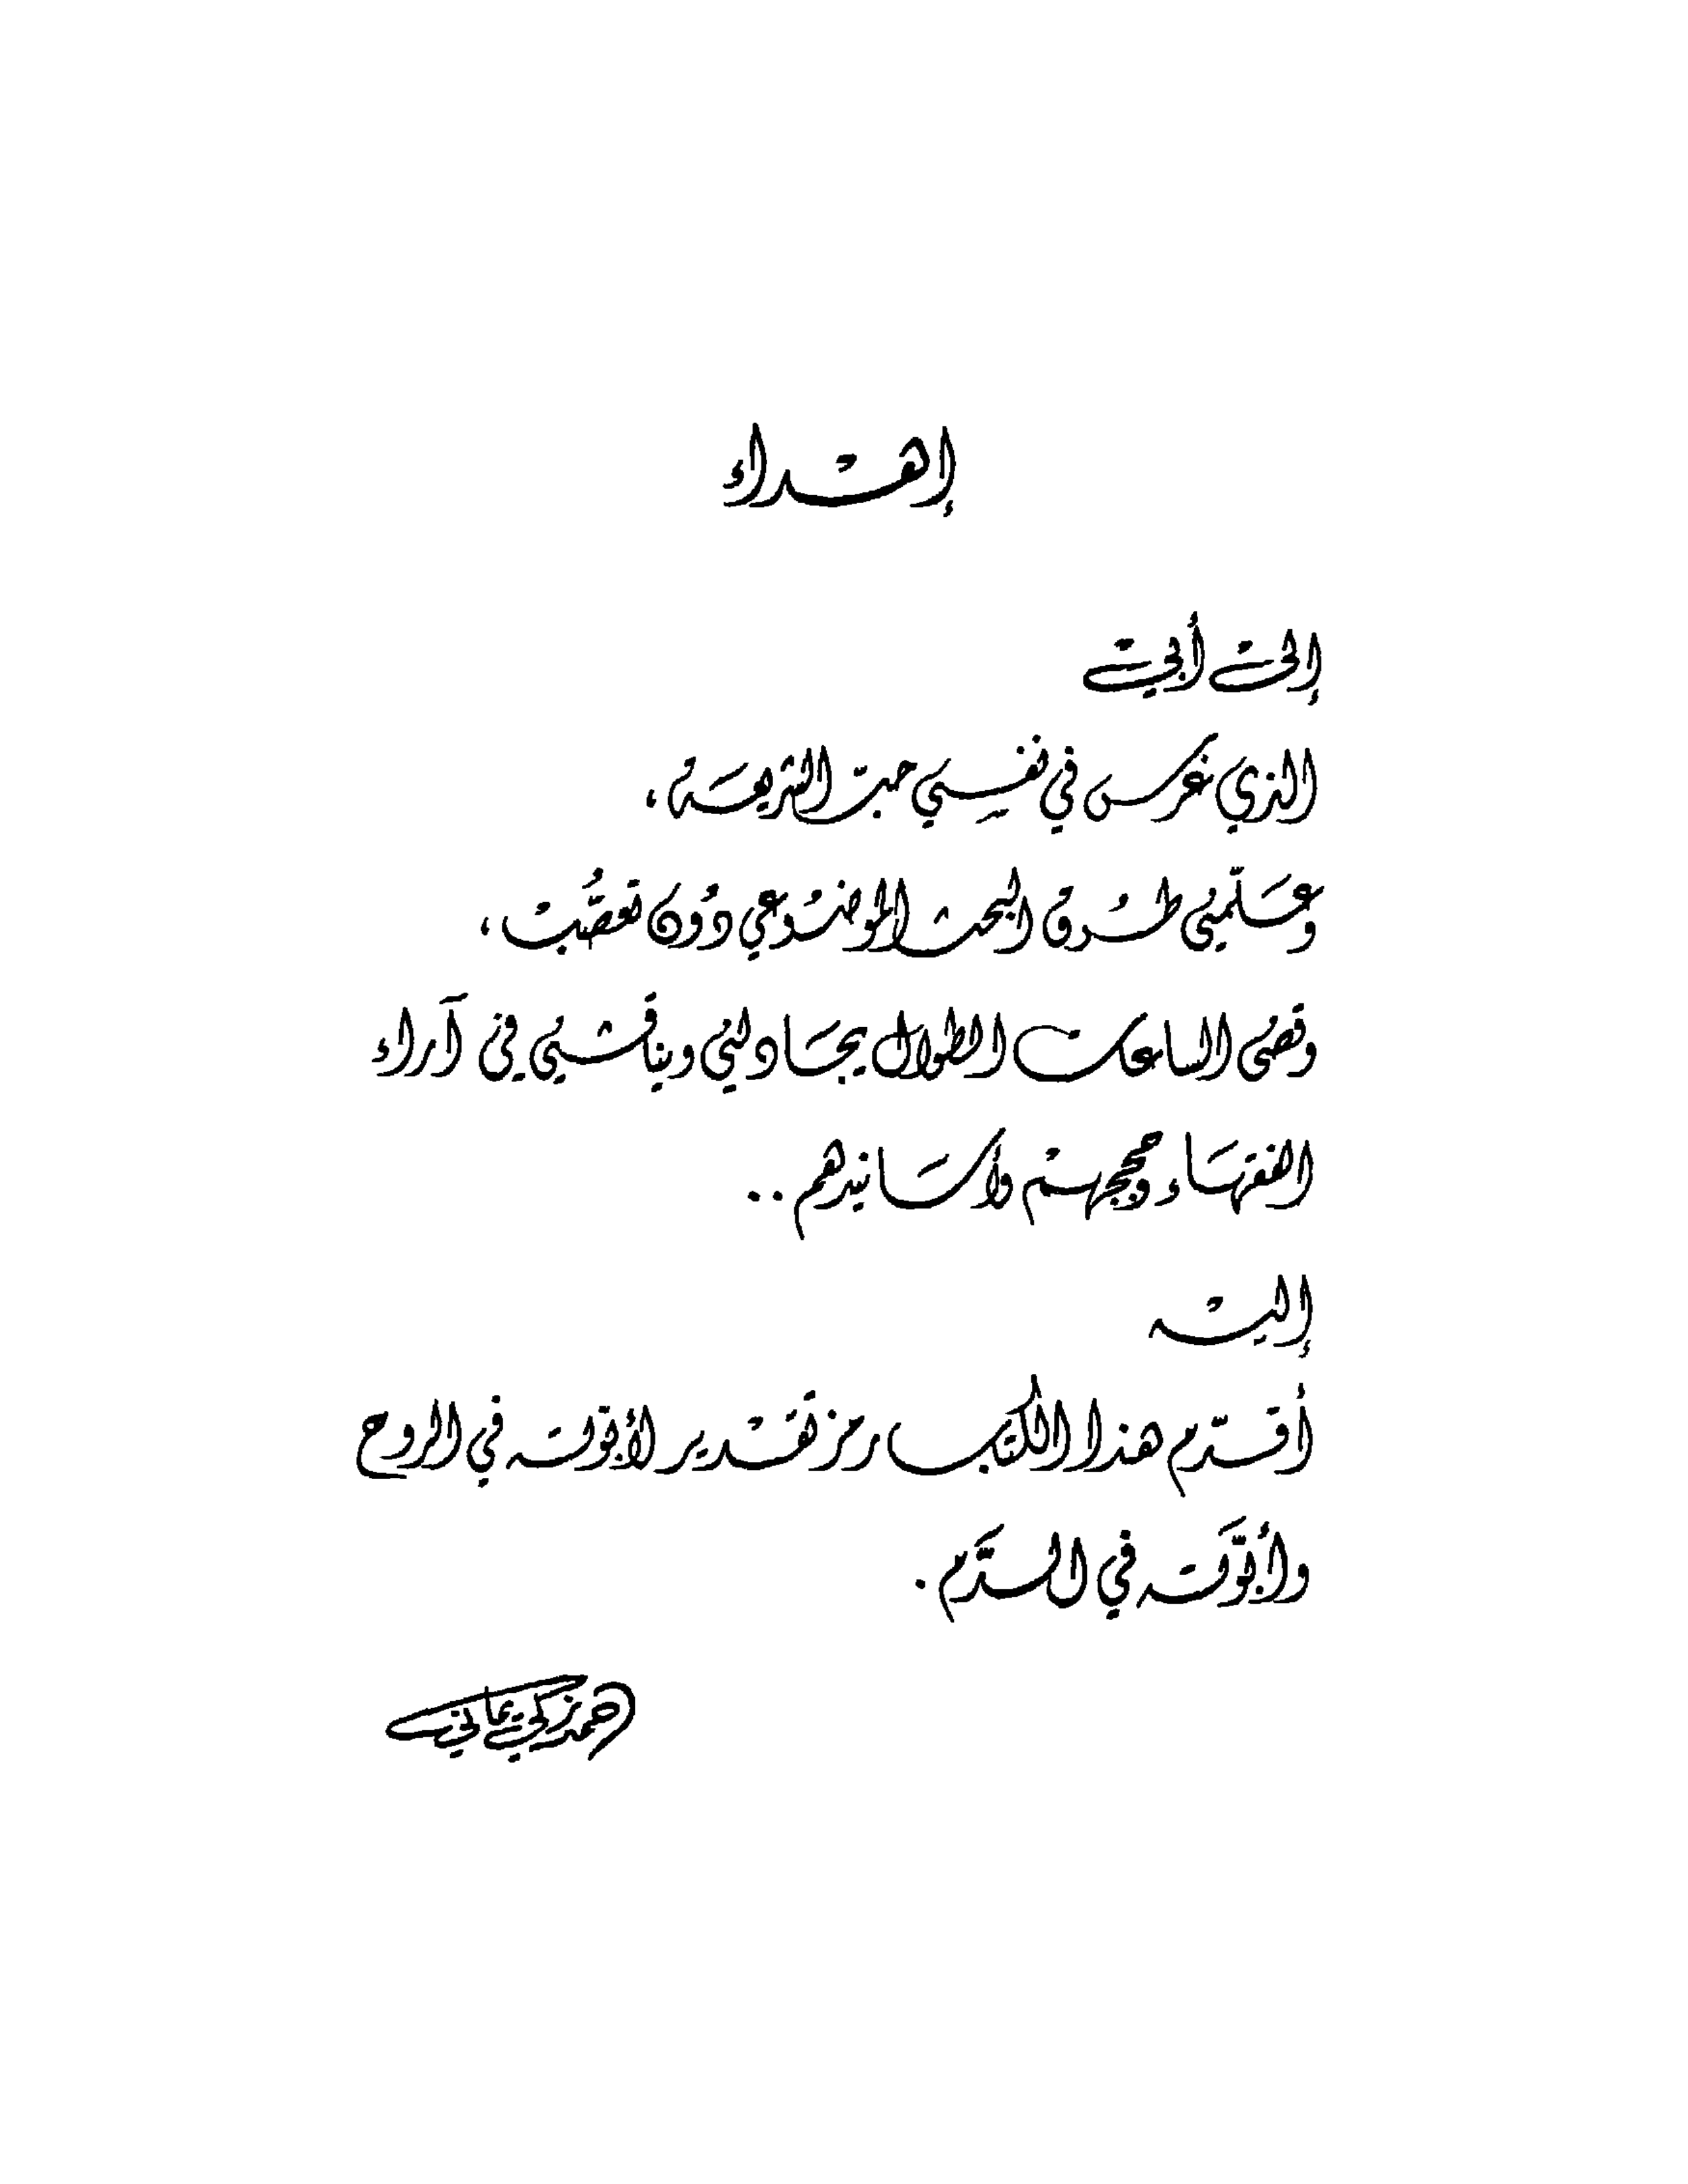 إهداء
إلى أبي
الذي غرس في نفسي حبّ الشريعة،
وعلّمني طرق البحث الموضوعي دون تعصُّب،
وقضى الساعات الطوال يجادلني ويناقشني في آراء
الفقهاء وحججهم وأسانيدهم..
إليه
أقدّم هذا الكتاب رمز تقدير لأبوته في الروح
وأبوّته في الدَّم.
أحمد زكي يماني